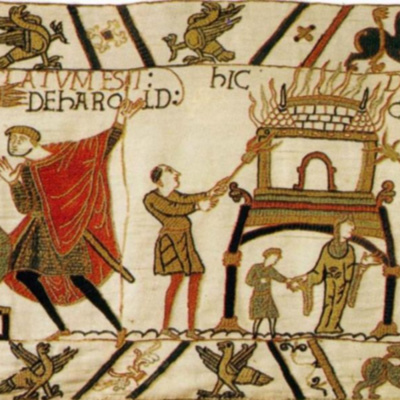 IATVM EST:
DE hAROLD:
hIC